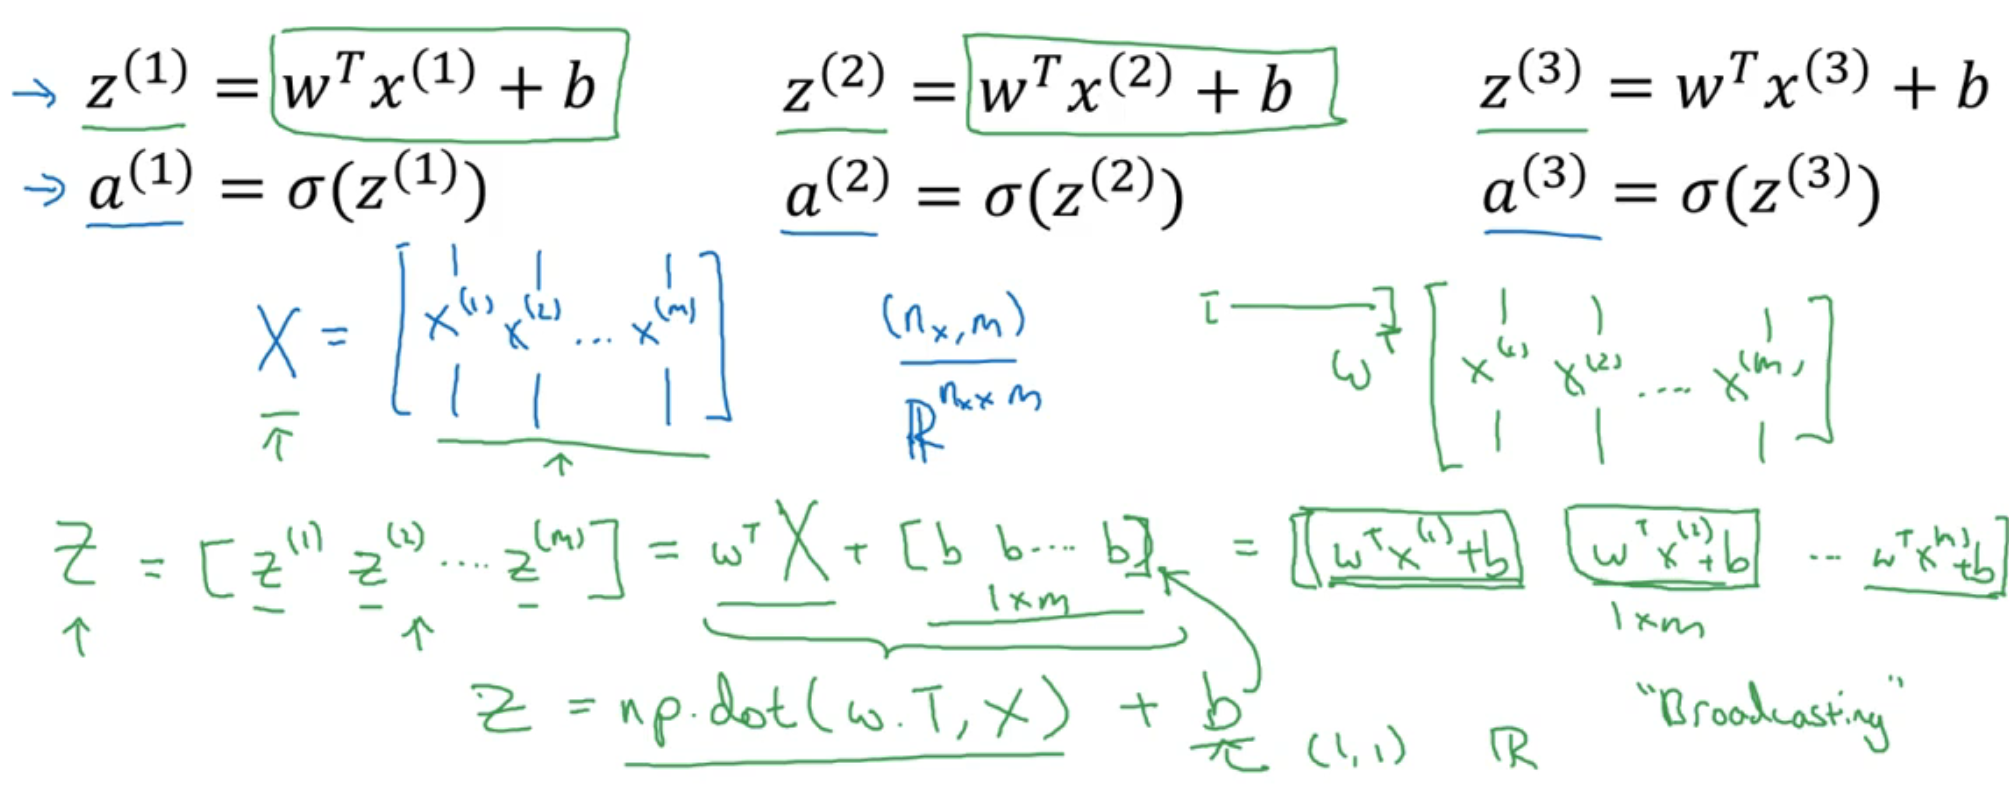 → z⁽¹⁾ = wᵀx⁽¹⁾ + b z⁽²⁾ = wᵀx⁽²⁾ + b z⁽³⁾ = wᵀx⁽³⁾ + b
→ a⁽¹⁾ = σ(z⁽¹⁾) a⁽²⁾ = σ(z⁽²⁾) a⁽³⁾ = σ(z⁽³⁾)
X = [x⁽¹⁾ x⁽²⁾ ... x⁽ᵐ⁾] (nₓ, m) wᵀ [x⁽¹⁾ x⁽²⁾ .... x⁽ᵐ⁾]
ℝ^(nₓ × m)
Z = [z⁽¹⁾ z⁽²⁾ .... z⁽ᵐ⁾] = wᵀX + [b b .... b] = [wᵀx⁽¹⁾+b wᵀx⁽²⁾+b ... wᵀx⁽ᵐ⁾+b]
1×m 1×m
Z = np.dot(w.T, X) + b (1,1) ℝ "Broadcasting"